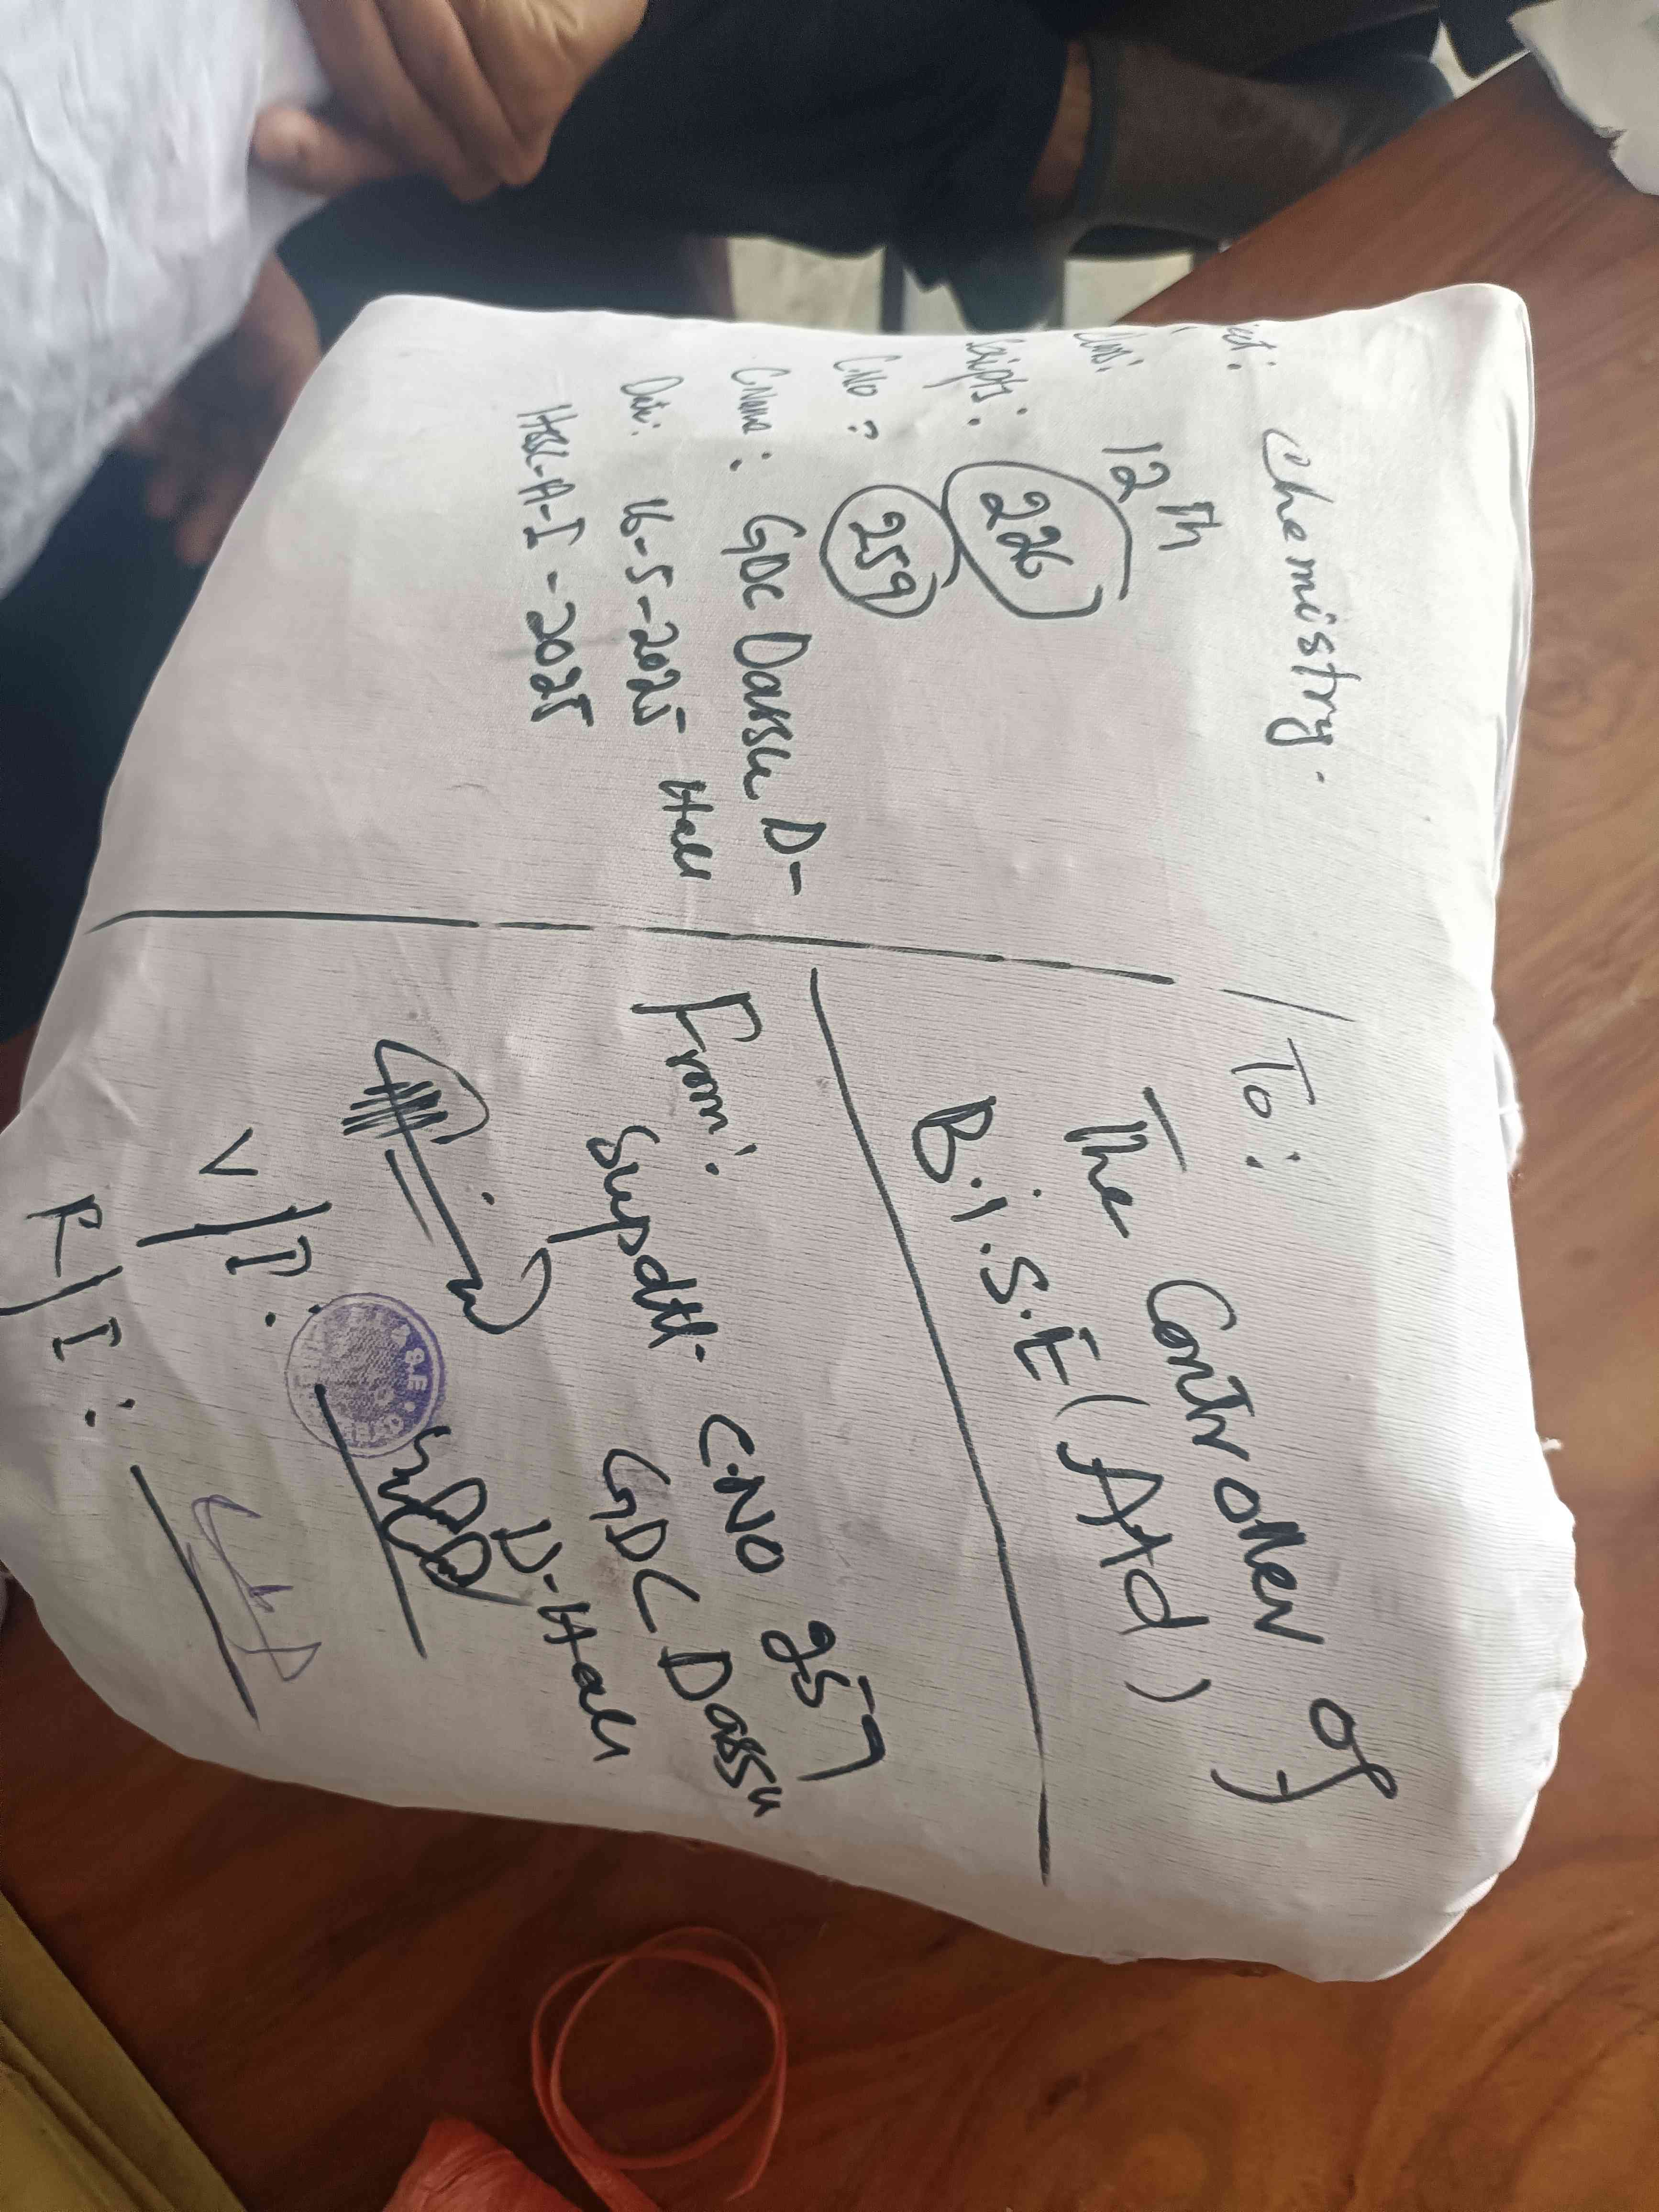 Chemistry.
12th
Scripts: 226
C.No: 259
C.Name: GDC Dassu D-
Hall
Date: 16-5-2025
HSSC-A-I-2025
To:
The Controller of
B.I.S.E (Atd)
From:
Supdtt. C.NO 259
GDC Dassu
D-Hall
V/I.
R/I: